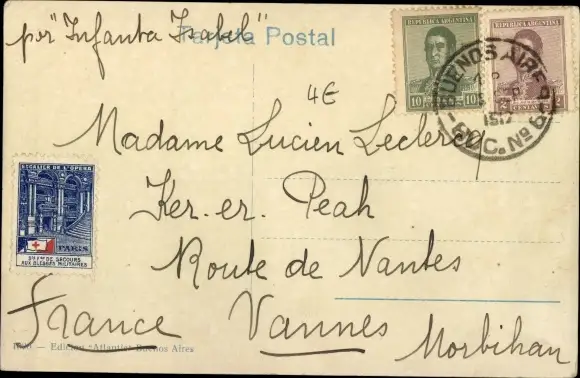 por "Infanta Isabel"
Tarjeta Postal
REPUBLICA ARGENTINA
10 10
REPUBLICA ARGENTINA
BUENOS AIRES
1917
SUC. Nº 6
4E
Madame Lucien Leclercq
Ker-er-Peah
Route de Nantes
Vannes Morbihan
France
ESCALIER DE L'OPERA
PARIS
DE SECOURS
AUX BLESSÉS MILITAIRES
Edicion "Atlantida" Buenos Aires